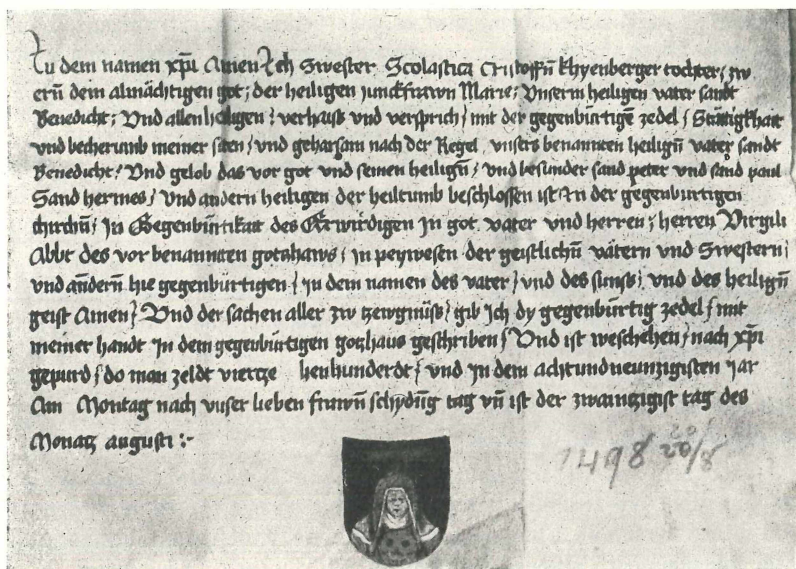 In dem namen xp̄i Amen Ich Swester Scolastica Cristoffn̄ khyenberger tochter; zw
ern̄ dem almächtigen got; der heiligen junckfrawn Marie; Vnserm heiligen vater sandt
Benedicht; Vnd allen heiligen; verhaiss vnd versprich; mit der gegenbürtigē zedel; Stättigkhait
vnd becherumb meiner siten; vnd gehorsam nach der Regel vnsers benannten heilign̄ vater sandt
Benedicht; Vnd gelob das vor got vnd seinen heilign̄; vnd besunder sand peter vnd sand paul
Sand hermes; vnd andern heiligen der heiltumb beschlossen ist In der gegenburtigen
chirchn̄; In Gegenbürtikait des Erwirdigen In got vater vnd herren; herren Virgili
Abbt des vor benannten gotzhaws; in peywesen der geistlichn̄ vätern vnd Swestern;
vnd andern̄ hie gegenbürtigen; in dem namen des vater; vnd des sunss; vnd des heilign̄
geist Amen; Vnd der sachen aller zw zewgnüss; gib Ich dy gegenbürtig zedel; mit
meiner handt In dem gegenbürtigen gotzhaus geschriben; Vnd ist weschehen; nach xp̄i
gepurd; do man zeldt viertze henhunderdt; vnd in dem achtundneunzigisten Jar
Am Montag nach vnser lieben frawn̄ schydūg tag vn̄ ist der zwaintzigist tag des
Monatz augusti :-
1498 20/8
20